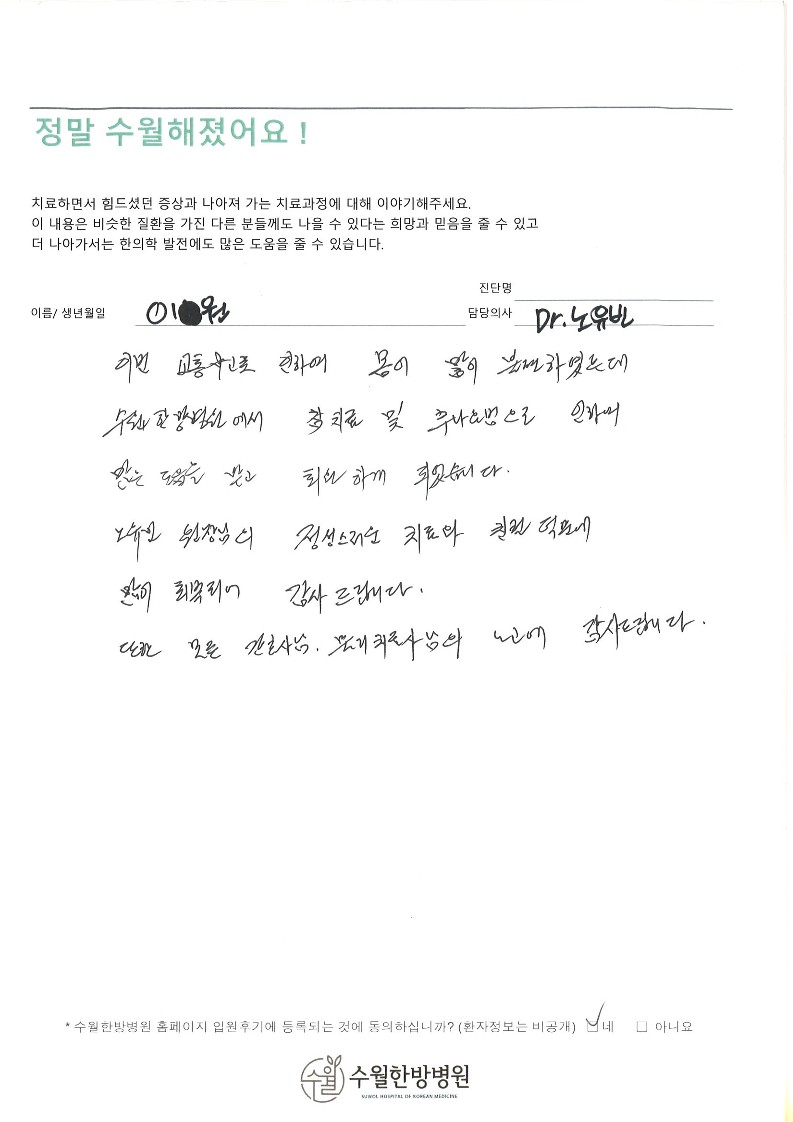 정말 수월해졌어요 !
치료하면서 힘드셨던 증상과 나아져 가는 치료과정에 대해 이야기해주세요.
이 내용은 비슷한 질환을 가진 다른 분들께도 나을 수 있다는 희망과 믿음을 줄 수 있고
더 나아가서는 한의학 발전에도 많은 도움을 줄 수 있습니다.
진단명
이름/ 생년월일 이 원
담당의사 Dr.노유빈
이번 교통사고로 인하여 몸이 많이 불편하였는데
수월한방병원에서 침치료 및 추나요법으로 인하여
많은 도움을 받고 퇴원하게 되었습니다.
노유빈 원장님의 정성스러운 치료와 친절 덕분에
많이 회복되어 감사드립니다.
또한 모든 간호사님, 물리치료사님의 노고에 감사드립니다.
* 수월한방병원 홈페이지 입원후기에 등록되는 것에 동의하십니까? (환자정보는 비공개) 네 아니요
수월 수월한방병원
SUWOL HOSPITAL OF KOREAN MEDICINE